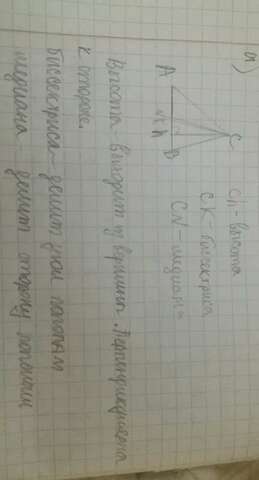 а)
A
C
N K h
B
Ch - высота
CK - биссектриса
CN - медиана
Высота выходит из вершины. Перпендикулярна
к стороне.
биссектриса - делит угол пополам
медиана делит сторону пополам